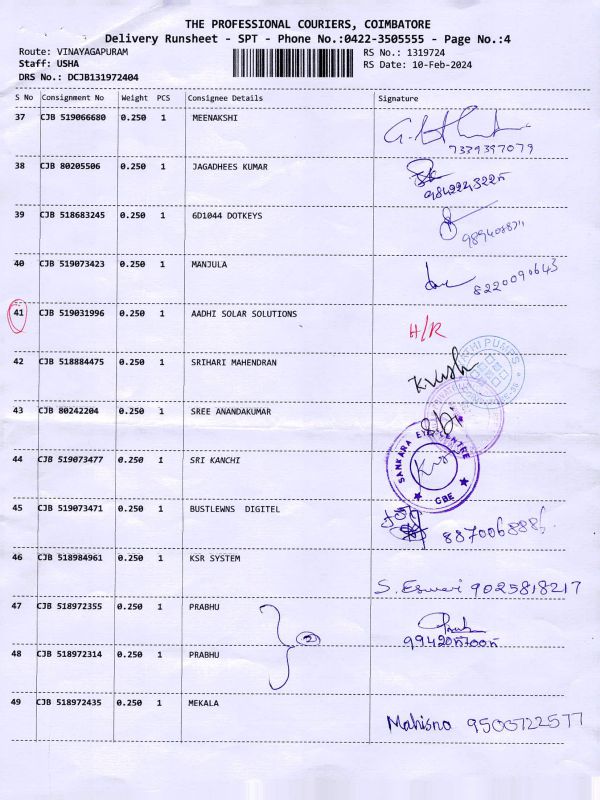 THE PROFESSIONAL COURIERS, COIMBATORE
Delivery Runsheet - SPT - Phone No.:0422-3505555 - Page No.:4
Route: VINAYAGAPURAM RS No.: 1319724
Staff: USHA RS Date: 10-Feb-2024
DRS No.: DCJB131972404
S No Consignment No Weight PCS Consignee Details Signature
37 CJB 519066680 0.250 1 MEENAKSHI
7339397079
38 CJB 80205506 0.250 1 JAGADHEES KUMAR
39 CJB 518683245 0.250 1 6D1044 DOTKEYS
40 CJB 519073423 0.250 1 MANJULA
8220090643
41 CJB 519031996 0.250 1 AADHI SOLAR SOLUTIONS H/R
42 CJB 518884475 0.250 1 SRIHARI MAHENDRAN
PUMPS
43 CJB 80242204 0.250 1 SREE ANANDAKUMAR
44 CJB 519073477 0.250 1 SRI KANCHI
SANKARA EYE CENTRE
CBE
45 CJB 519073471 0.250 1 BUSTLEWNS DIGITEL
46 CJB 518984961 0.250 1 KSR SYSTEM
S. Eswari 9025818217
47 CJB 518972355 0.250 1 PRABHU
2
48 CJB 518972314 0.250 1 PRABHU
49 CJB 518972435 0.250 1 MEKALA
Mahisno 9500722577